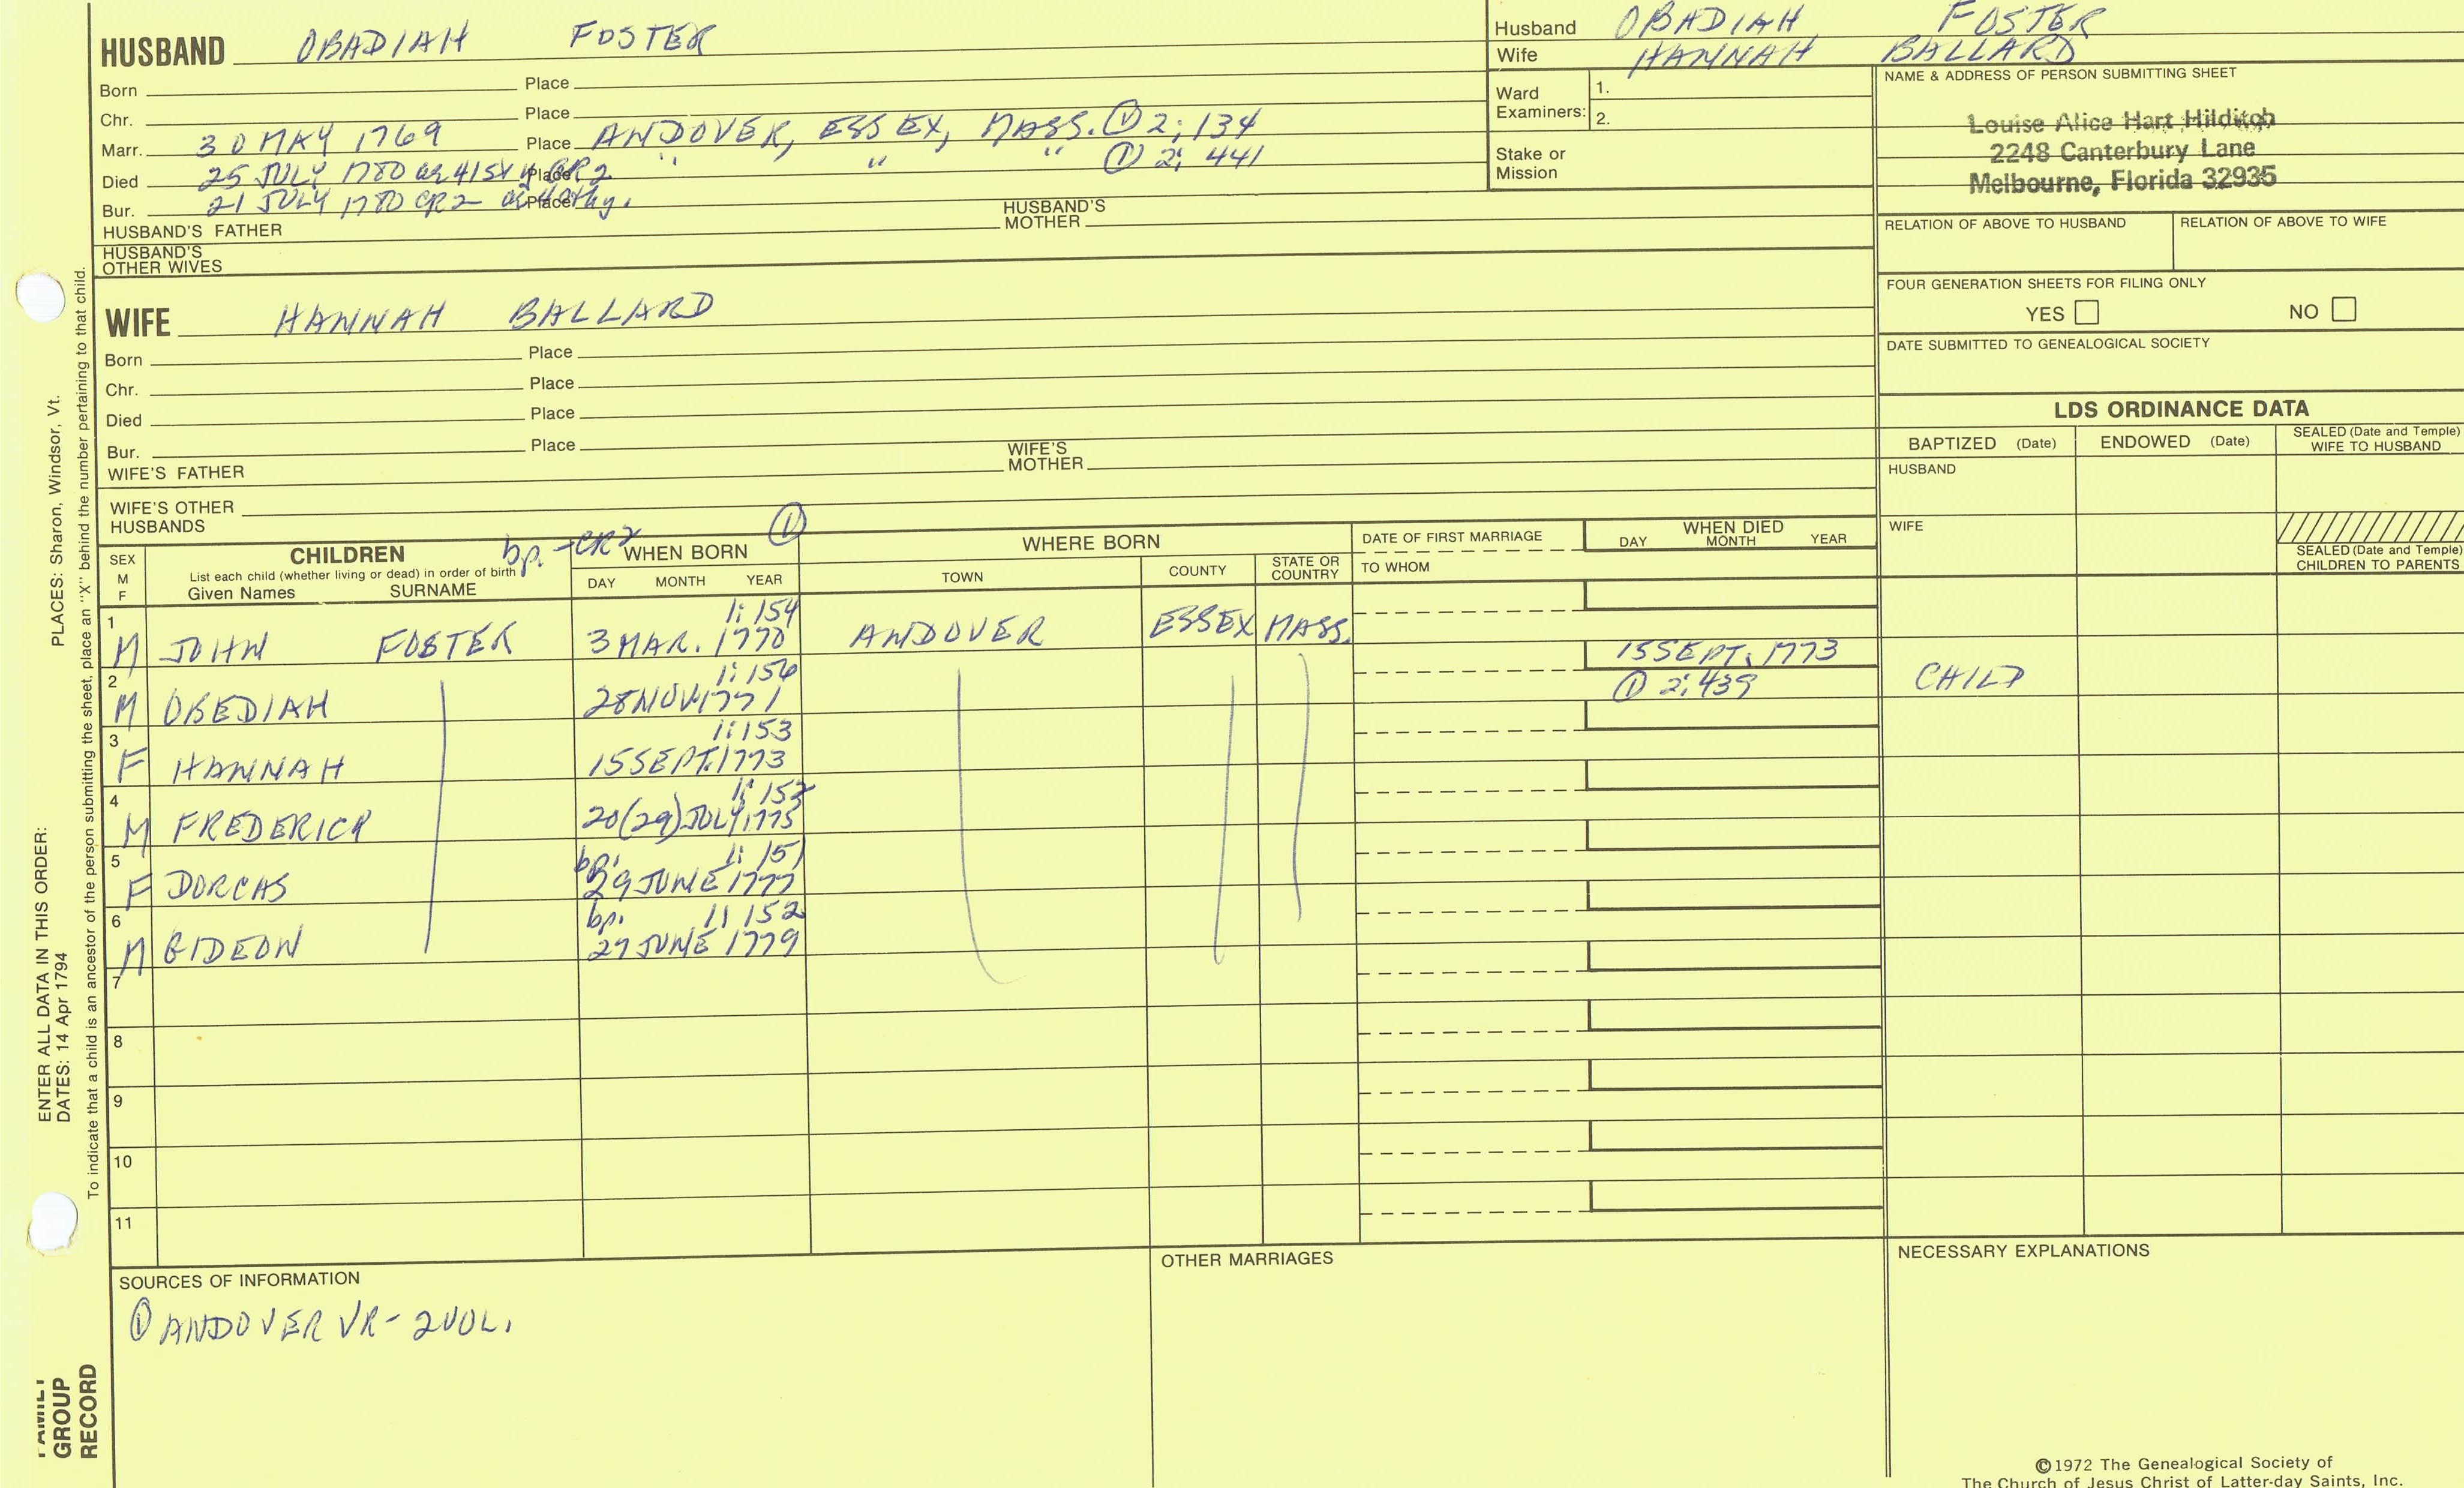 HUSBAND OBADIAH FOSTER
Born Place
Chr. Place
Marr. 30 MAY 1769 Place ANDOVER, ESSEX, MASS. ① 2; 134
Died 25 JULY 1780 ae 41 Place CR2 " " " ① 2; 441
Bur. 21 JULY 1780 CR2 Place
HUSBAND'S FATHER HUSBAND'S MOTHER
HUSBAND'S OTHER WIVES
Husband OBADIAH FOSTER
Wife HANNAH BALLARD
Ward Examiners: 1.
2.
Stake or Mission
NAME & ADDRESS OF PERSON SUBMITTING SHEET
Louise Alice Hart Hilditch
2248 Canterbury Lane
Melbourne, Florida 32935
RELATION OF ABOVE TO HUSBAND RELATION OF ABOVE TO WIFE
FOUR GENERATION SHEETS FOR FILING ONLY
YES NO
DATE SUBMITTED TO GENEALOGICAL SOCIETY
WIFE HANNAH BALLARD
Born Place
Chr. Place
Died Place
Bur. Place
WIFE'S FATHER WIFE'S MOTHER
WIFE'S OTHER HUSBANDS
LDS ORDINANCE DATA
BAPTIZED (Date) ENDOWED (Date) SEALED (Date and Temple) WIFE TO HUSBAND
HUSBAND
WIFE
SEALED (Date and Temple) CHILDREN TO PARENTS
bp. - CR2 ①
SEX M F
CHILDREN
List each child (whether living or dead) in order of birth
Given Names SURNAME
WHEN BORN
DAY MONTH YEAR
WHERE BORN
TOWN COUNTY STATE OR COUNTRY
DATE OF FIRST MARRIAGE
TO WHOM
WHEN DIED
DAY MONTH YEAR
1:154
1 M JOHN FOSTER 3 MAR. 1770 ANDOVER ESSEX MASS.
1:156 15 SEPT. 1773
2 M OBEDIAH 28 NOV. 1771 ① 2:439 CHILD
1:153
3 F HANNAH 15 SEPT. 1773
1:152
4 M FREDERICK 20(29) JULY 1775
bp. 1:151
5 F DORCAS 29 JUNE 1777
bp. 1:152
6 M GIDEON 27 JUNE 1779
7
8
9
10
11
SOURCES OF INFORMATION
① ANDOVER VR - 2 VOL.
OTHER MARRIAGES
NECESSARY EXPLANATIONS
©1972 The Genealogical Society of
The Church of Jesus Christ of Latter-day Saints, Inc.
ENTER ALL DATA IN THIS ORDER:
DATES: 14 Apr 1794 PLACES: Sharon, Windsor, Vt.
To indicate that a child is an ancestor of the person submitting the sheet, place an "X" behind the number pertaining to that child.
FAMILY
GROUP
RECORD